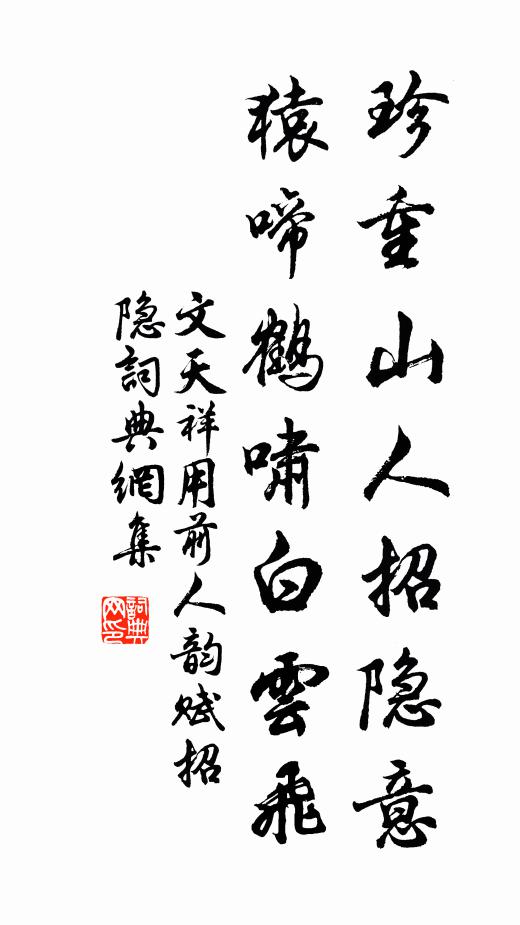 珍重山人招隐意
猿啼鶴嘯白雲飛
文天祥用前人韵赋招
隐詞典網集
詞典
网印